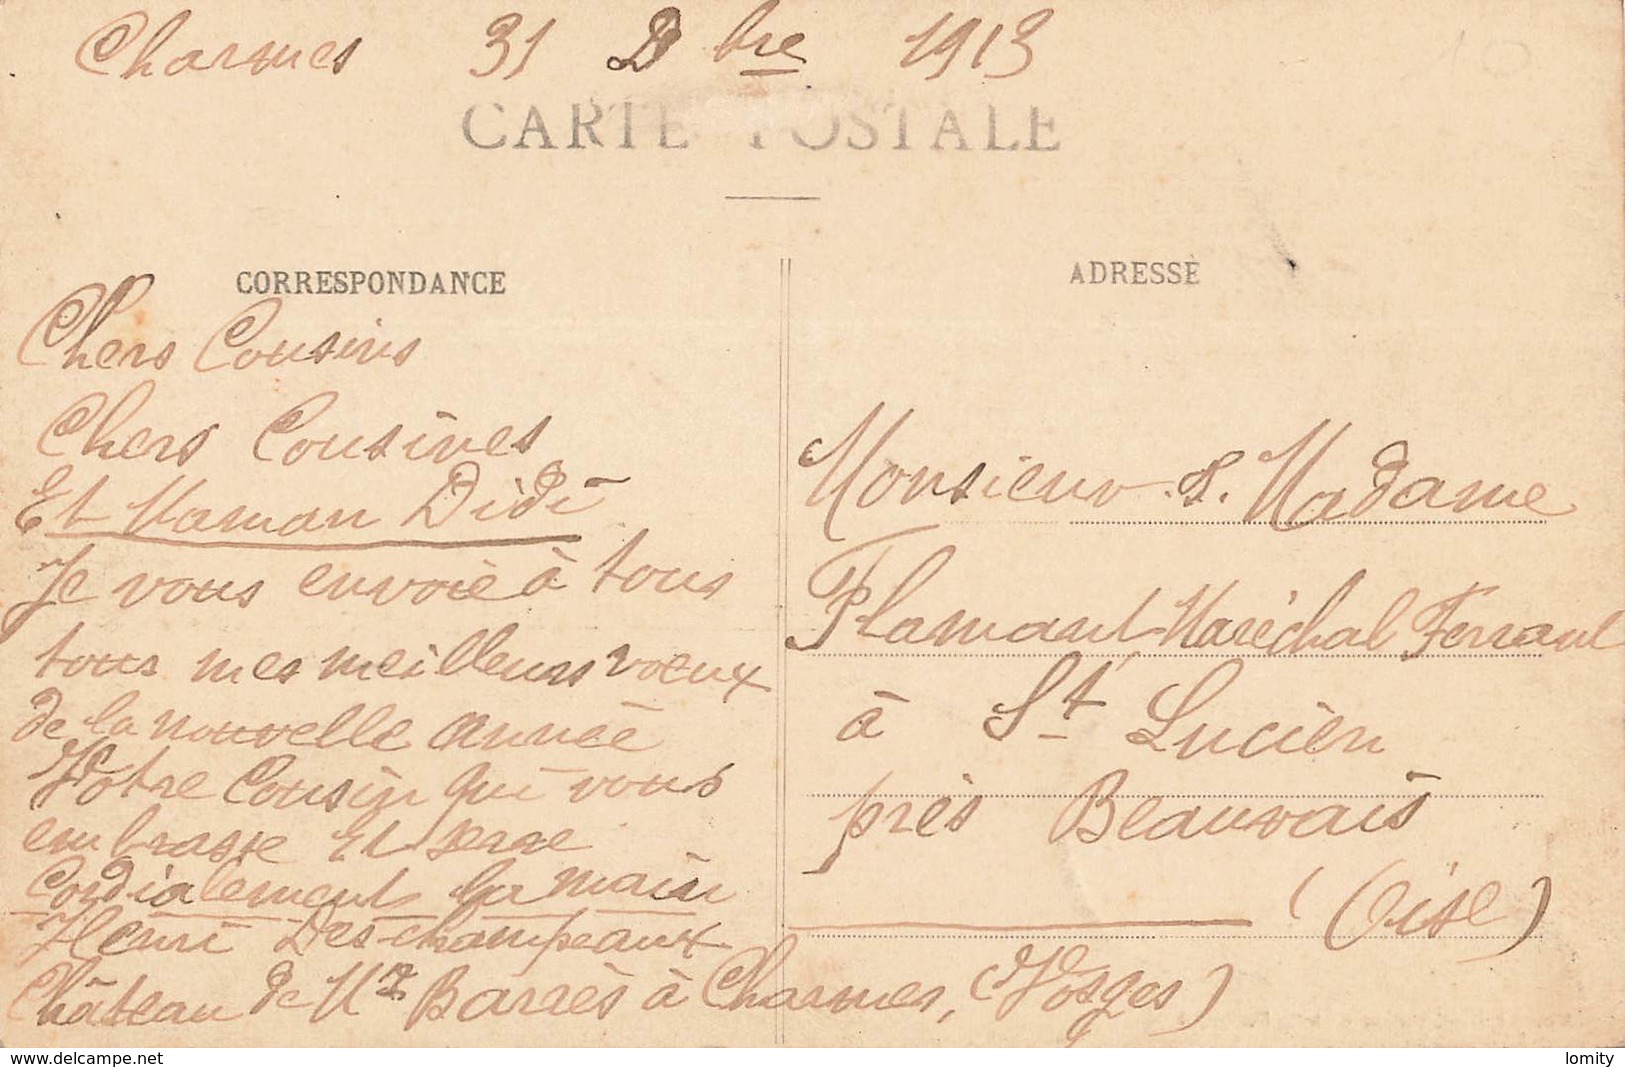 Charmes 31 Dbre 1913
CARTE POSTALE
CORRESPONDANCE
Chers Cousins
Chers Cousines
Et Maman Didi
Je vous envoie à tous
tous mes meilleurs voeux
de la nouvelle année
Votre Cousin qui vous
embrasse Et serre
Cordialement la main
Henri Deschampeaux
Château de Mr Barrès à Charmes, (Vosges)
ADRESSE
Monsieur & Madame
Flamant Maréchal Ferrant
à St Lucien
près Beauvais
(Oise)
www.delcampe.net
lomity